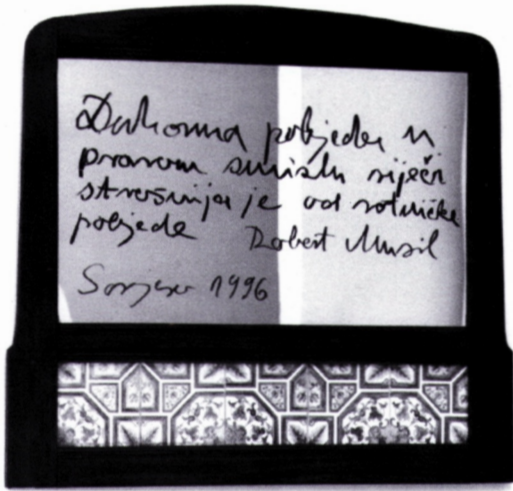 Duhovna pobjeda u
pravom smislu riječi
strašnija je od ratničke
pobjede Robert Musil
Sarajevo 1996